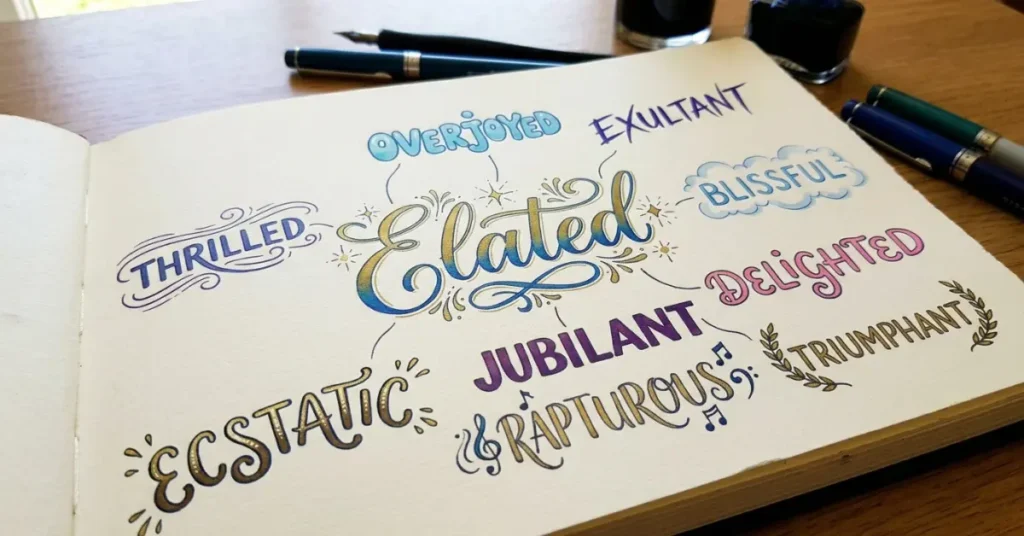 OVERJOYED
EXULTANT
THRILLED
Elated
BLISSFUL
DELIGHTED
JUBILANT
TRIUMPHANT
ECSTATIC
RAPTUROUS